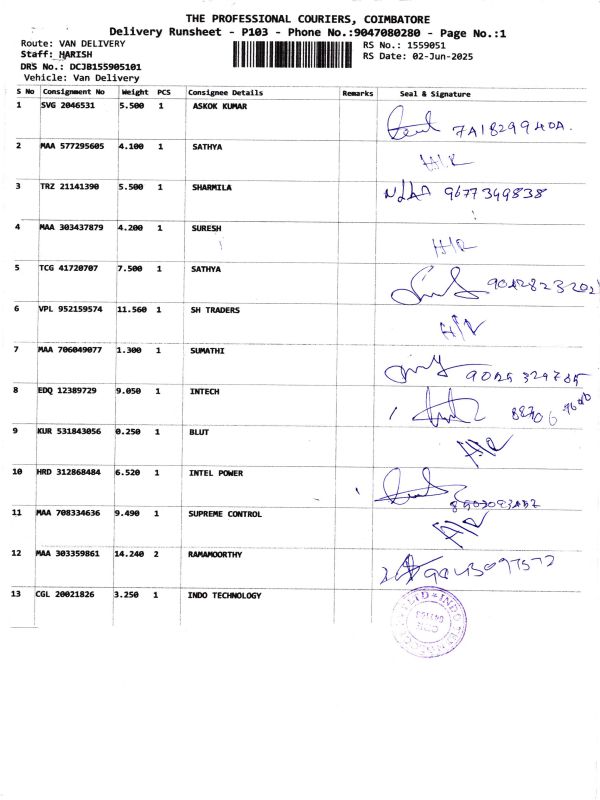 THE PROFESSIONAL COURIERS, COIMBATORE
Delivery Runsheet - P103 - Phone No.:9047080280 - Page No.:1
Route: VAN DELIVERY RS No.: 1559051
Staff: HARISH RS Date: 02-Jun-2025
DRS No.: DCJB155905101
Vehicle: Van Delivery
S No Consignment No Weight PCS Consignee Details Remarks Seal & Signature
1 SVG 2046531 5.500 1 ASKOK KUMAR
7A1829940A.
2 MAA 577295605 4.100 1 SATHYA
3 TRZ 21141390 5.500 1 SHARMILA 9677349838
4 MAA 303437879 4.200 1 SURESH
5 TCG 41720707 7.500 1 SATHYA
6 VPL 952159574 11.560 1 SH TRADERS
7 MAA 706049077 1.300 1 SUMATHI
8 EDQ 12389729 9.050 1 INTECH
9 KUR 531843056 0.250 1 BLUT
10 HRD 312868484 6.520 1 INTEL POWER
11 MAA 708334636 9.490 1 SUPREME CONTROL
12 MAA 303359861 14.240 2 RAMAMOORTHY
13 CGL 20021826 3.250 1 INDO TECHNOLOGY